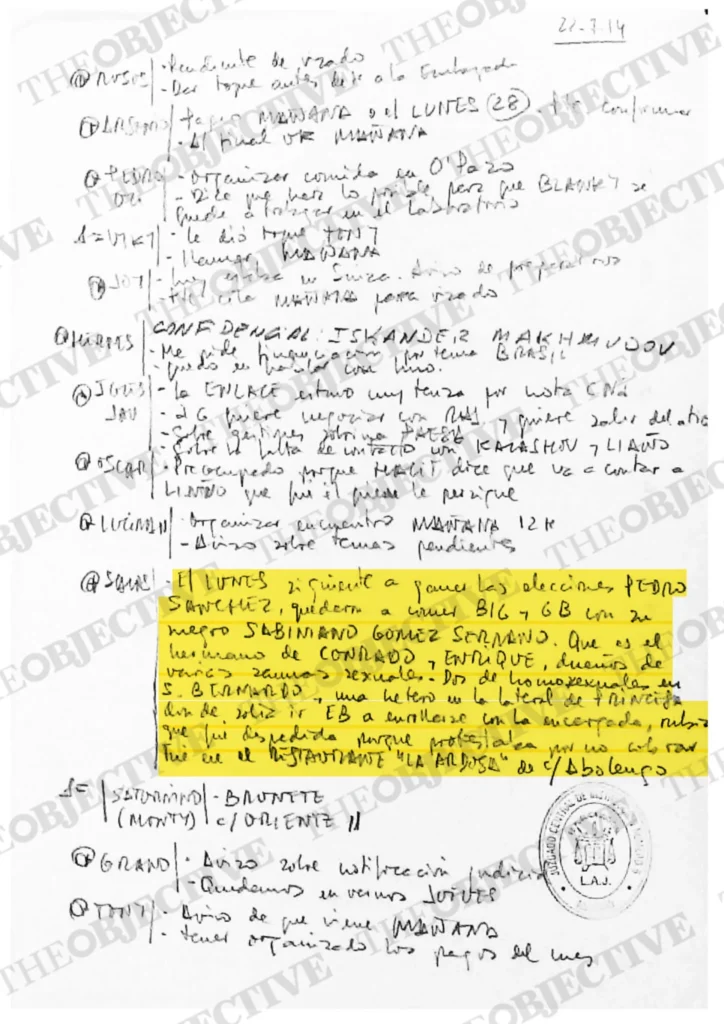 22-7-14
RUSOS - Pendiente de visado
- Dar toque antes de ir a la Embajada
MAÑANA o el LUNES (28). confirmar
- Al final OK MAÑANA
PEDRO - Organizar comida en O'Pazo
- Dice que hará lo posible para que BLANKY se
quede a trabajar en el laboratorio
- le dió toque TONY
- llamar MAÑANA
- Hoy estaba en Suiza. Aviso de preparativos
MAÑANA para visado
CONFIDENCIAL: ISKANDER MAKHMUDOV
- Me pide por tema BRASIL
- quedo en hablar con
- La ENLACE estuvo muy tensa por nota CNI
- JG quiere negociar con y quiere salir
- Sobre gestiones
- Sobre la falta de contacto con KALASHOV y LIAÑO
OSCAR - Preocupado porque dice que va a contar a
LIAÑO que fué él quien le persigue
- Organizar encuentro MAÑANA 12H
- Aviso sobre temas pendientes
- El LUNES siguiente a ganar las elecciones PEDRO
SANCHEZ, quedaron a comer BIG y GB con su
negro SABINIANO GOMEZ SERRANO. Que es el
hermano de CONRADO y ENRIQUE, dueños de
varias saunas sexuales. Dos de homosexuales en
S. BERNARDO, una hetero en la lateral de PRINCESA
donde solía ir EB a enrollarse con la encargada, rubia
que fué despedida porque protestaba por no cobrar
Fué en el RESTAURANTE "LA ARDOSA" de c/Abolengo
SATURNINO - BRUNETE
(MONTY) c/ORIENTE 11
GRANO - Aviso sobre notificación judicial
- Quedamos en vernos JUEVES
TONY - Aviso de que viene MAÑANA
- tener organizado los pagos del mes
JUZGADO CENTRAL DE INSTRUCCIÓN
L.A.J.
THE OBJECTIVE